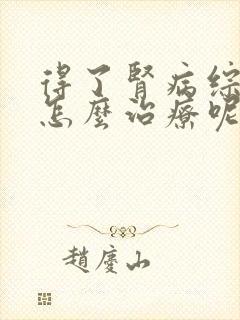 得了腎病綜
怎麼治療呢
趙慶山